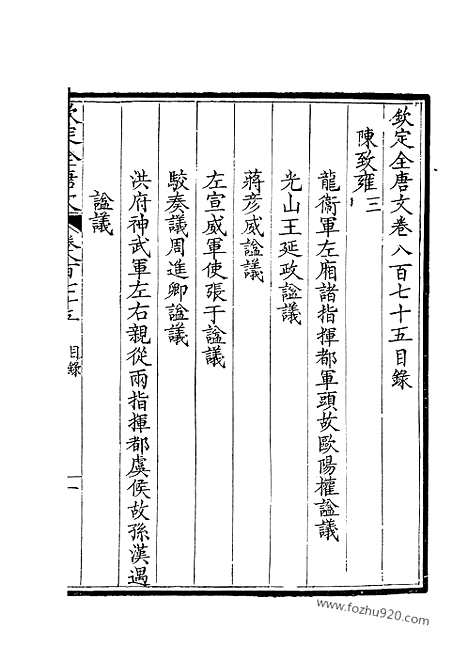 欽定全唐文卷八百七十五目錄
陳致雍三
龍衞軍左廂諸指揮都軍頭故歐陽權諡議
光山王延政諡議
蔣彥威諡議
左宣威軍使張于諡議
駮奏議周進卿諡議
洪府神武軍左右親從兩指揮都虞候故孫漢遇
諡議
欽定全唐文 卷八百七十五 目錄 一
www.fozhu920.com